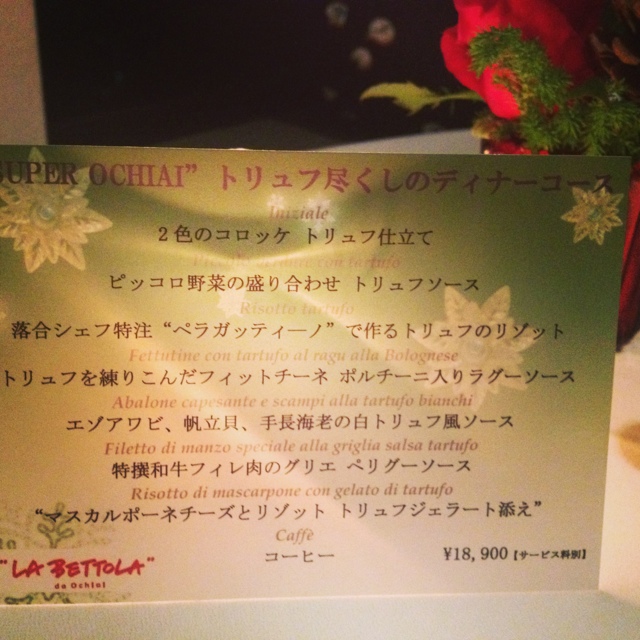 SUPER OCHIAI” トリュフ尽くしのディナーコース
Iniziale
２色のコロッケ トリュフ仕立て
con tartufo
ピッコロ野菜の盛り合わせ トリュフソース
Risotto tartufo
落合シェフ特注“ペラガッティーノ”で作るトリュフのリゾット
Fettutine con tartufo al ragu alla Bolognese
トリュフを練りこんだフィットチーネ ポルチーニ入りラグーソース
Abalone capesante e scampi alla tartufo bianchi
エゾアワビ、帆立貝、手長海老の白トリュフ風ソース
Filetto di manzo speciale alla griglia salsa tartufo
特撰和牛フィレ肉のグリエ ペリグーソース
Risotto di mascarpone con gelato di tartufo
“マスカルポーネチーズとリゾット トリュフジェラート添え”
Caffè
コーヒー
¥18,900【サービス料別】
"LA BETTOLA"
da Ochiai